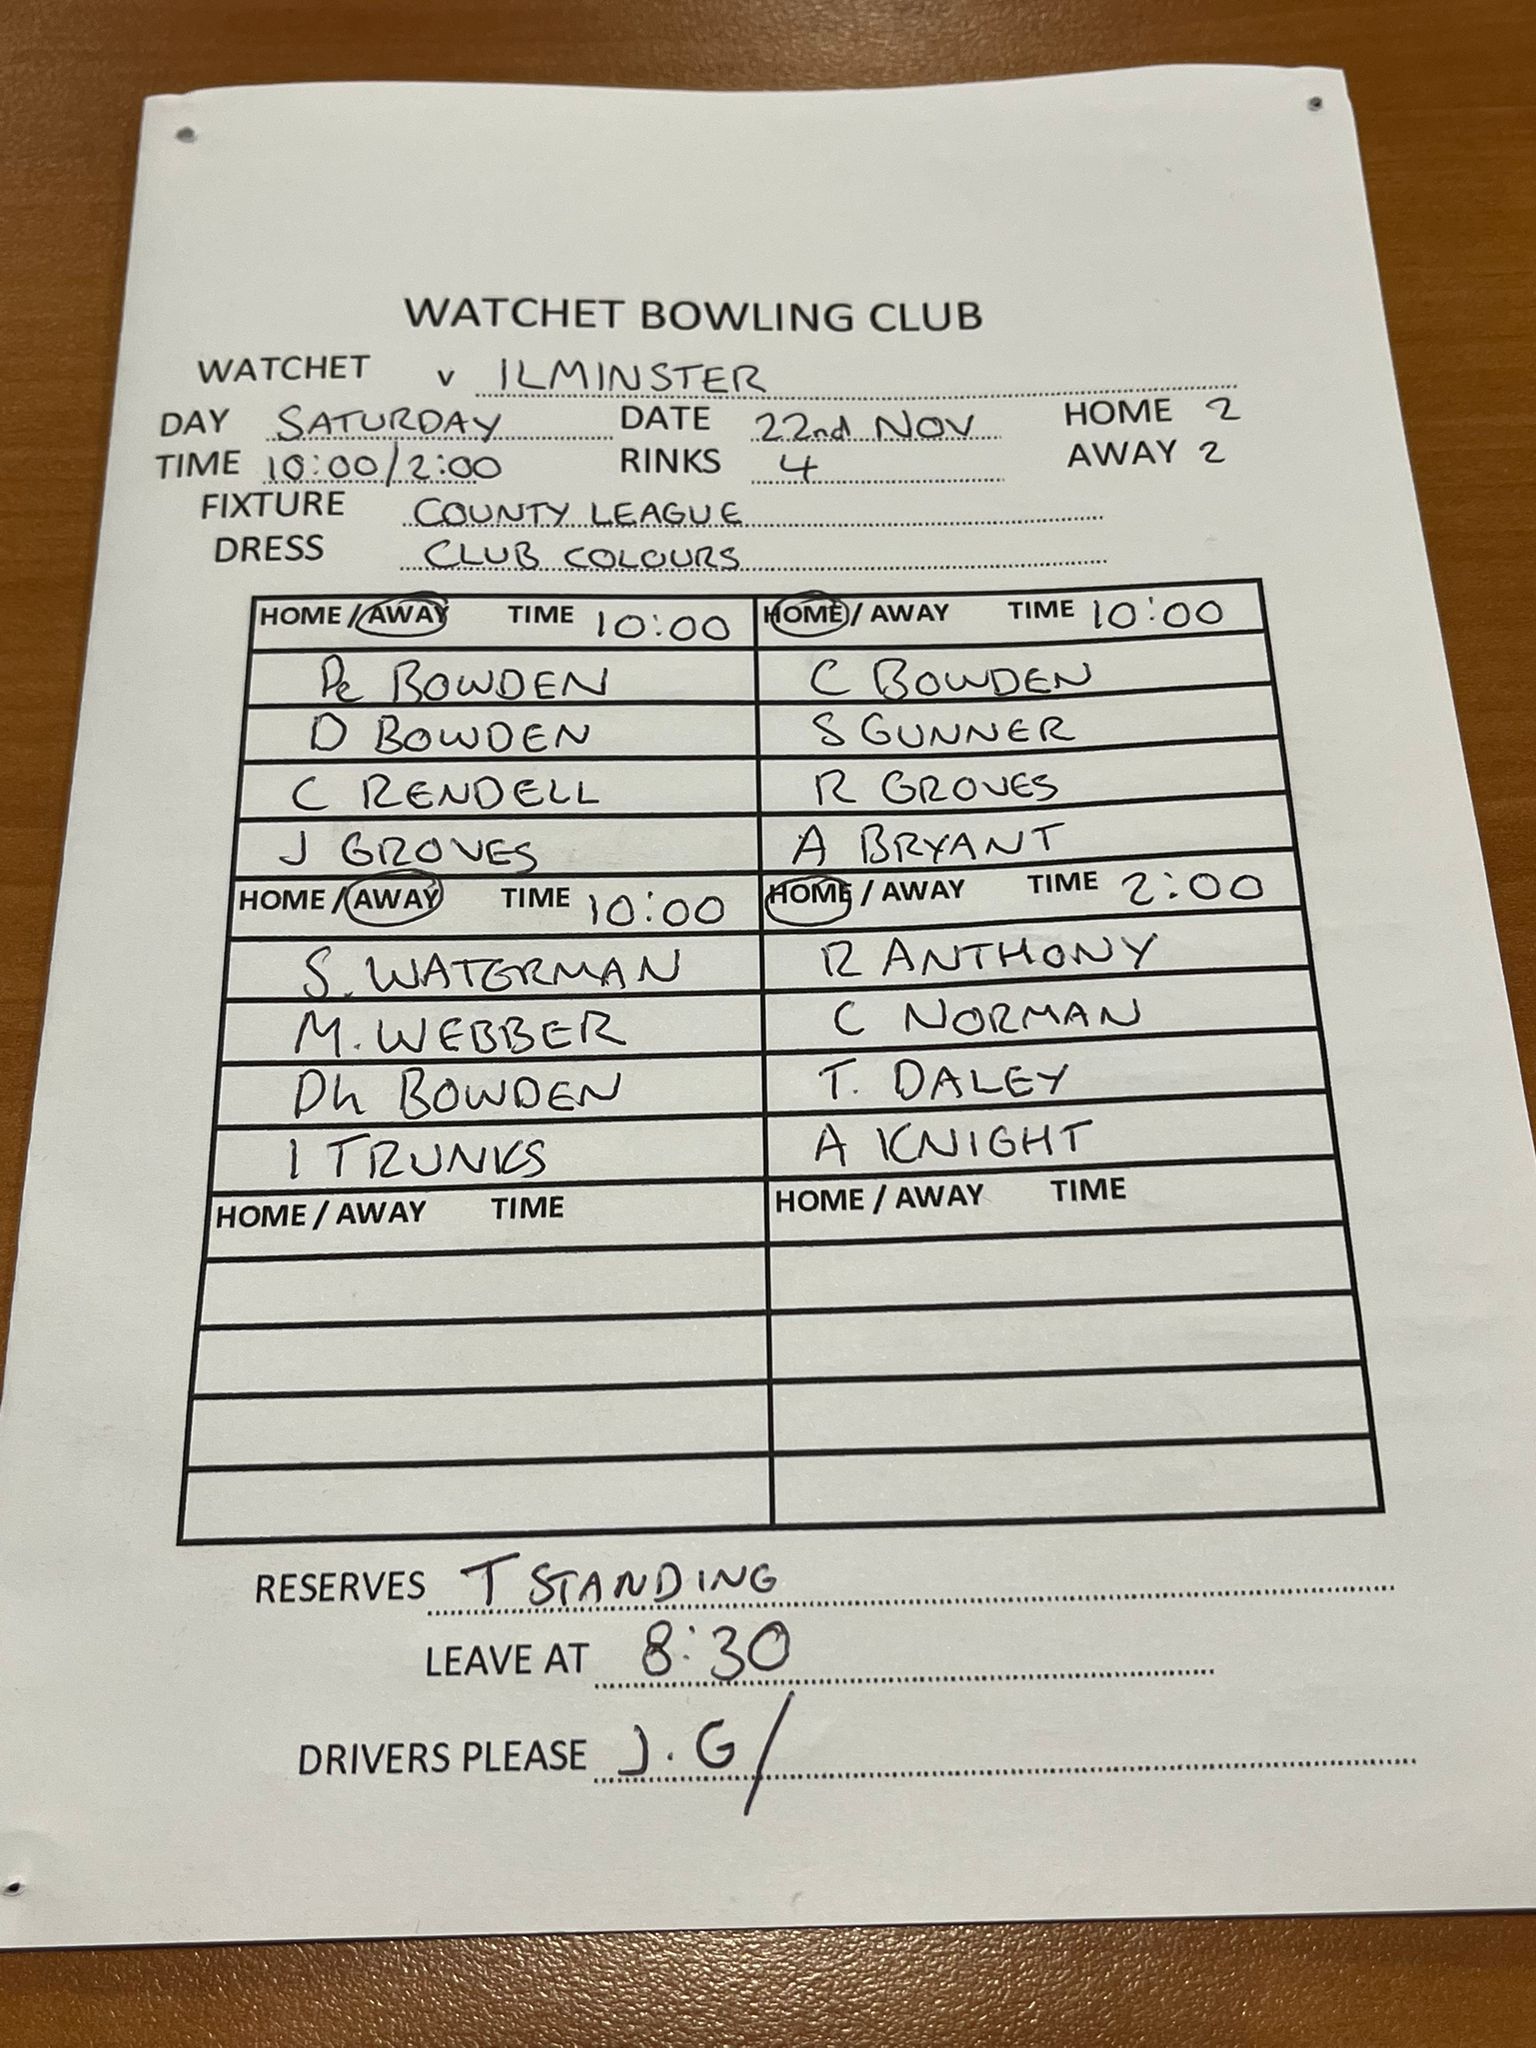 WATCHET BOWLING CLUB
WATCHET v ILMINSTER
DAY SATURDAY DATE 22nd NOV HOME 2
TIME 10:00/2:00 RINKS 4 AWAY 2
FIXTURE COUNTY LEAGUE
DRESS CLUB COLOURS
HOME / AWAY TIME 10:00 HOME / AWAY TIME 10:00
Pe BOWDEN C BOWDEN
D BOWDEN S GUNNER
C RENDELL R GROVES
J GROVES A BRYANT
HOME / AWAY TIME 10:00 HOME / AWAY TIME 2:00
S. WATERMAN R ANTHONY
M. WEBBER C NORMAN
Dh BOWDEN T. DALEY
I TRUNKS A KNIGHT
HOME / AWAY TIME HOME / AWAY TIME
RESERVES T STANDING
LEAVE AT 8:30
DRIVERS PLEASE J.G/